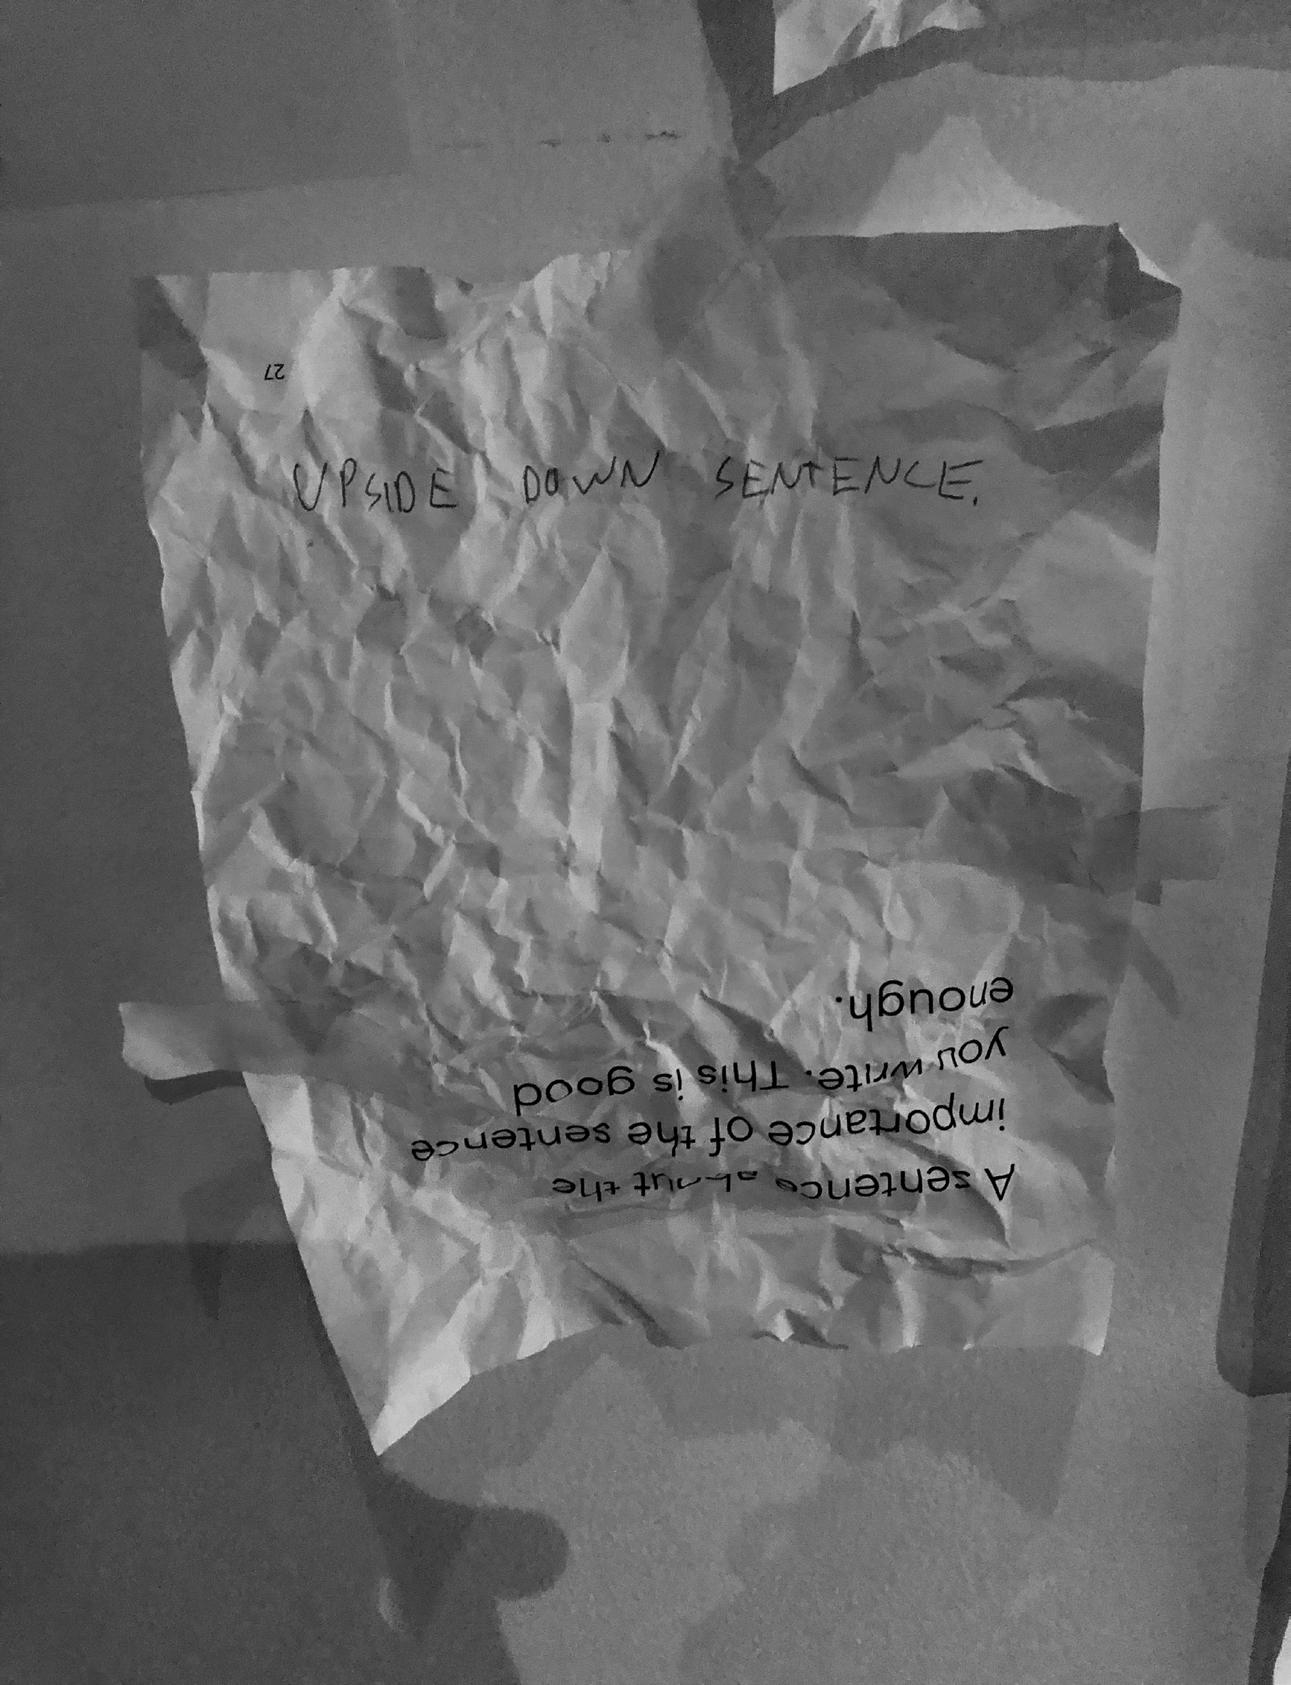 27
UPSIDE DOWN SENTENCE.
A sentence about the
importance of the sentence
you write. This is good
enough.